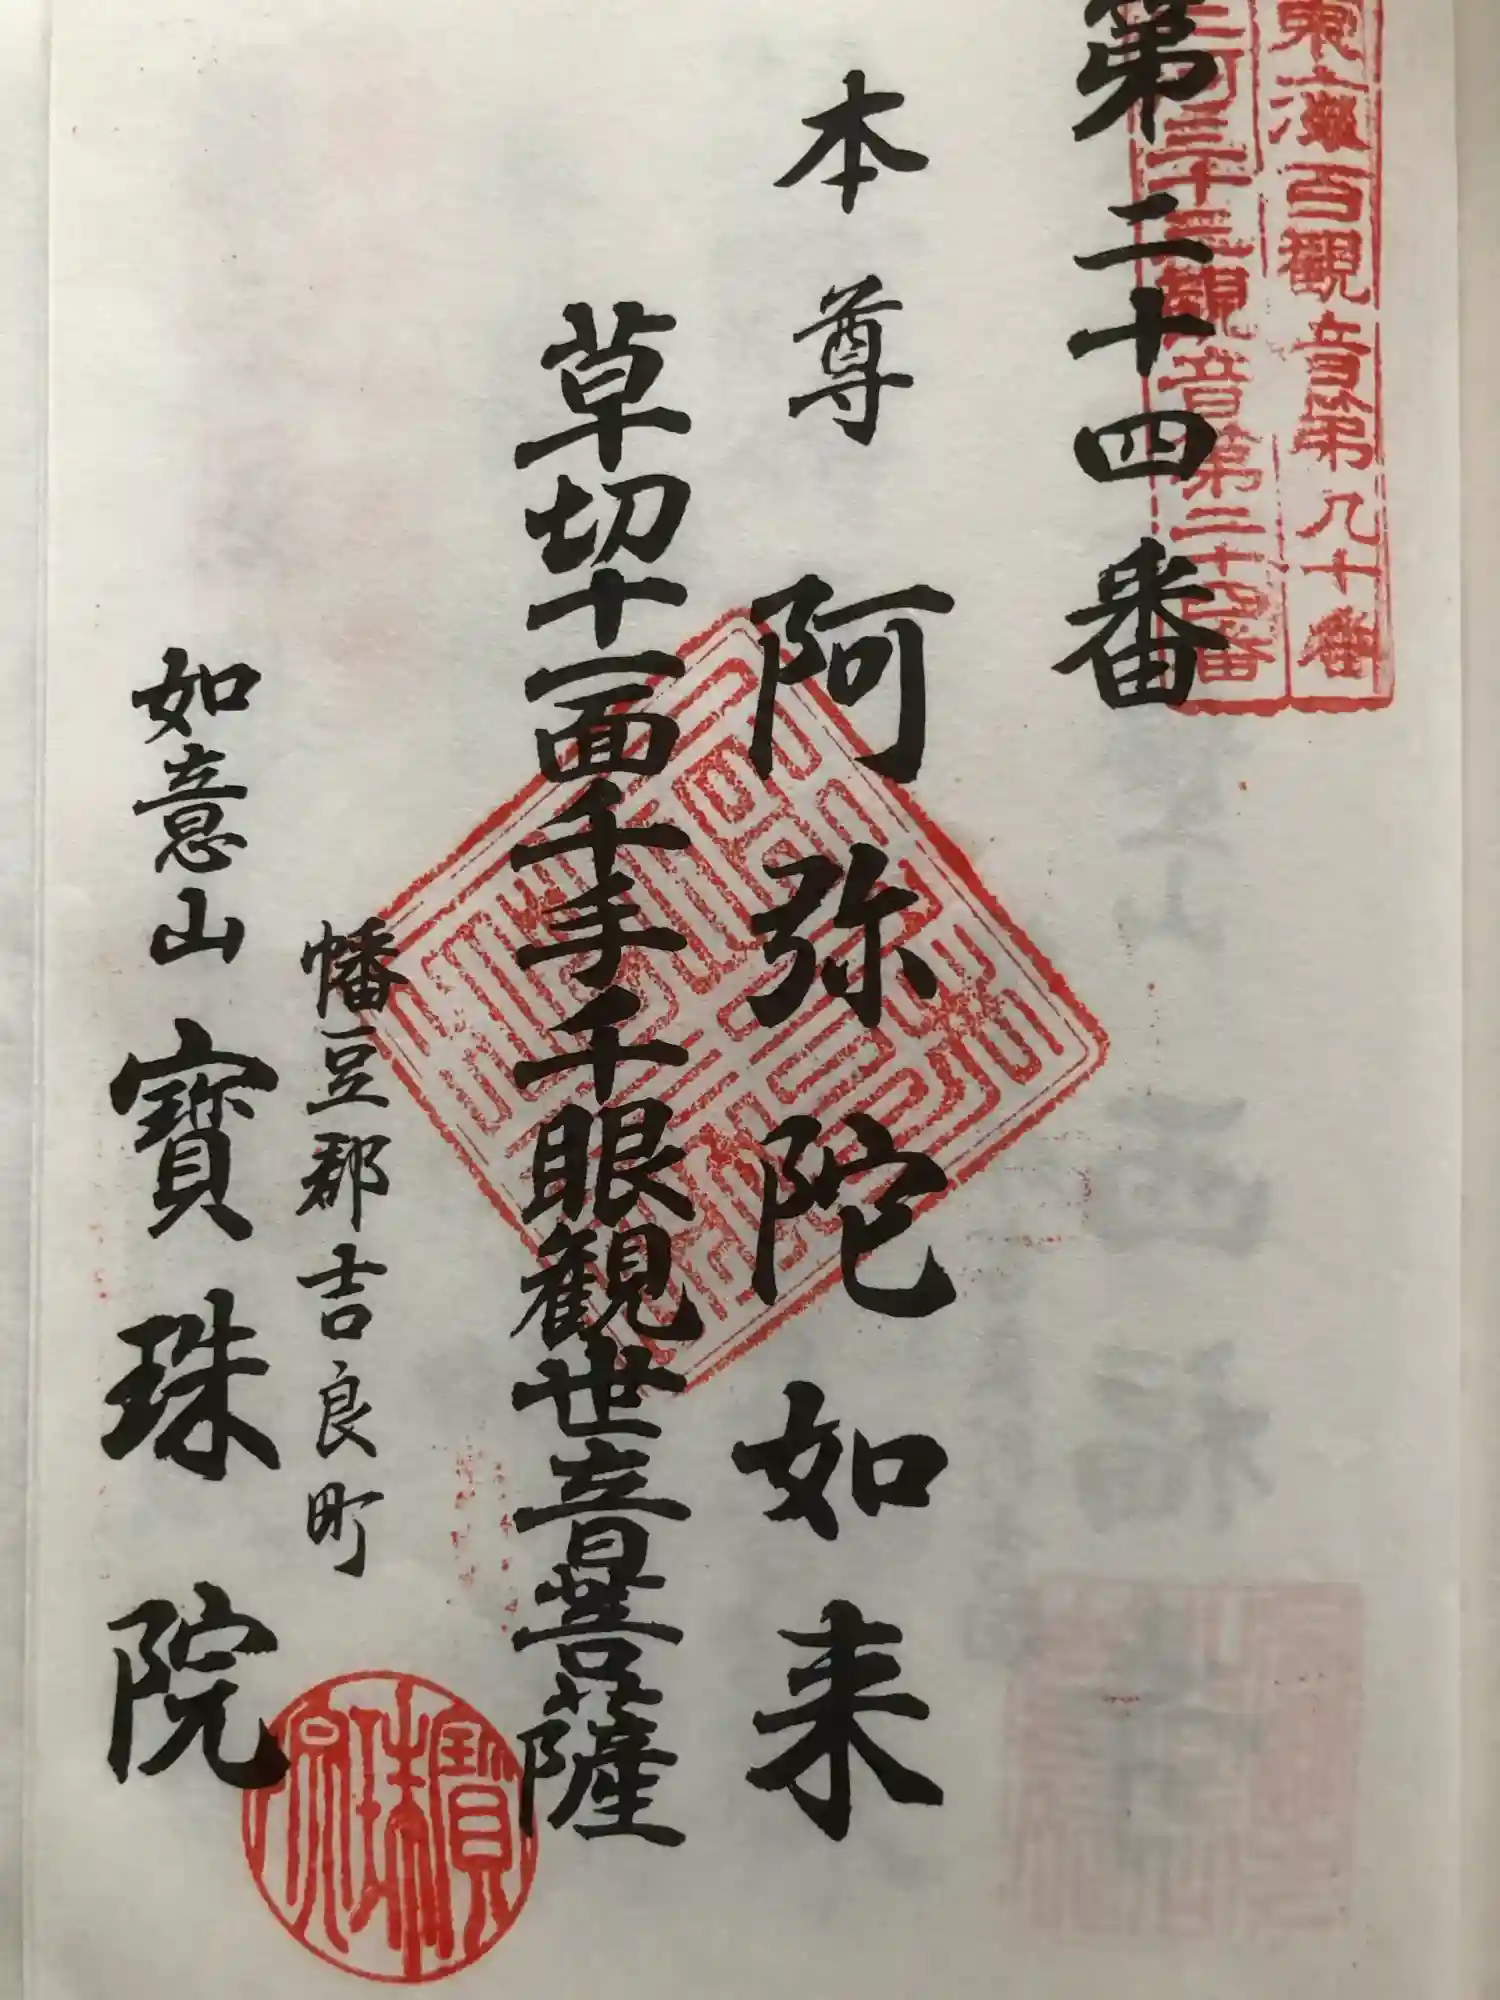 東海百觀音第九十番
三河三十三観音第二十四番
第二十四番
本尊 阿弥陀如来
草切十一面千手千眼観世音菩薩
幡豆郡吉良町
如意山 寶珠院